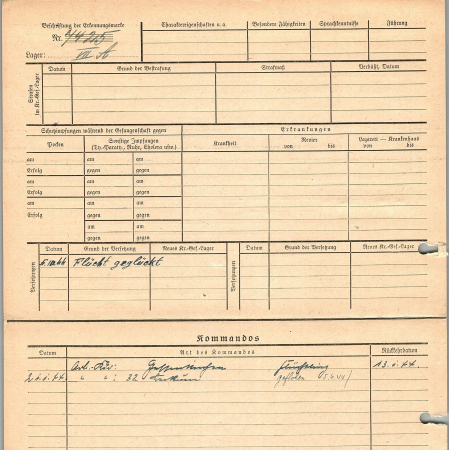 Beschriftung der Erkennungsmarke
Nr.
Lager:
Charaktereigenschaften u. a.
Besondere Fähigkeiten
Sprachkenntnisse
Führung
Strafen im Kr.-Gef.-Lager
Datum
Grund der Bestrafung
Strafmaß
Verbüßt, Datum
Schutzimpfungen während der Gefangenschaft gegen
Erkrankungen
Pocken
Sonstige Impfungen
(Ty.-Paraty., Ruhr, Cholera usw.)
Krankheit
Revier
von bis
Lazarett — Krankenhaus
von bis
am am am
Erfolg gegen gegen
am am am
Erfolg gegen gegen
am am am
Erfolg gegen gegen
am am
gegen gegen
Versetzungen
Datum
Grund der Versetzung
Neues Kr.-Gef.-Lager
Versetzungen
Datum
Grund der Versetzung
Neues Kr.-Gef.-Lager
Flucht geglückt
Kommandos
Datum
Art des Kommandos
Rückkehrdatum
Arb.-Kdo:
" " : 32